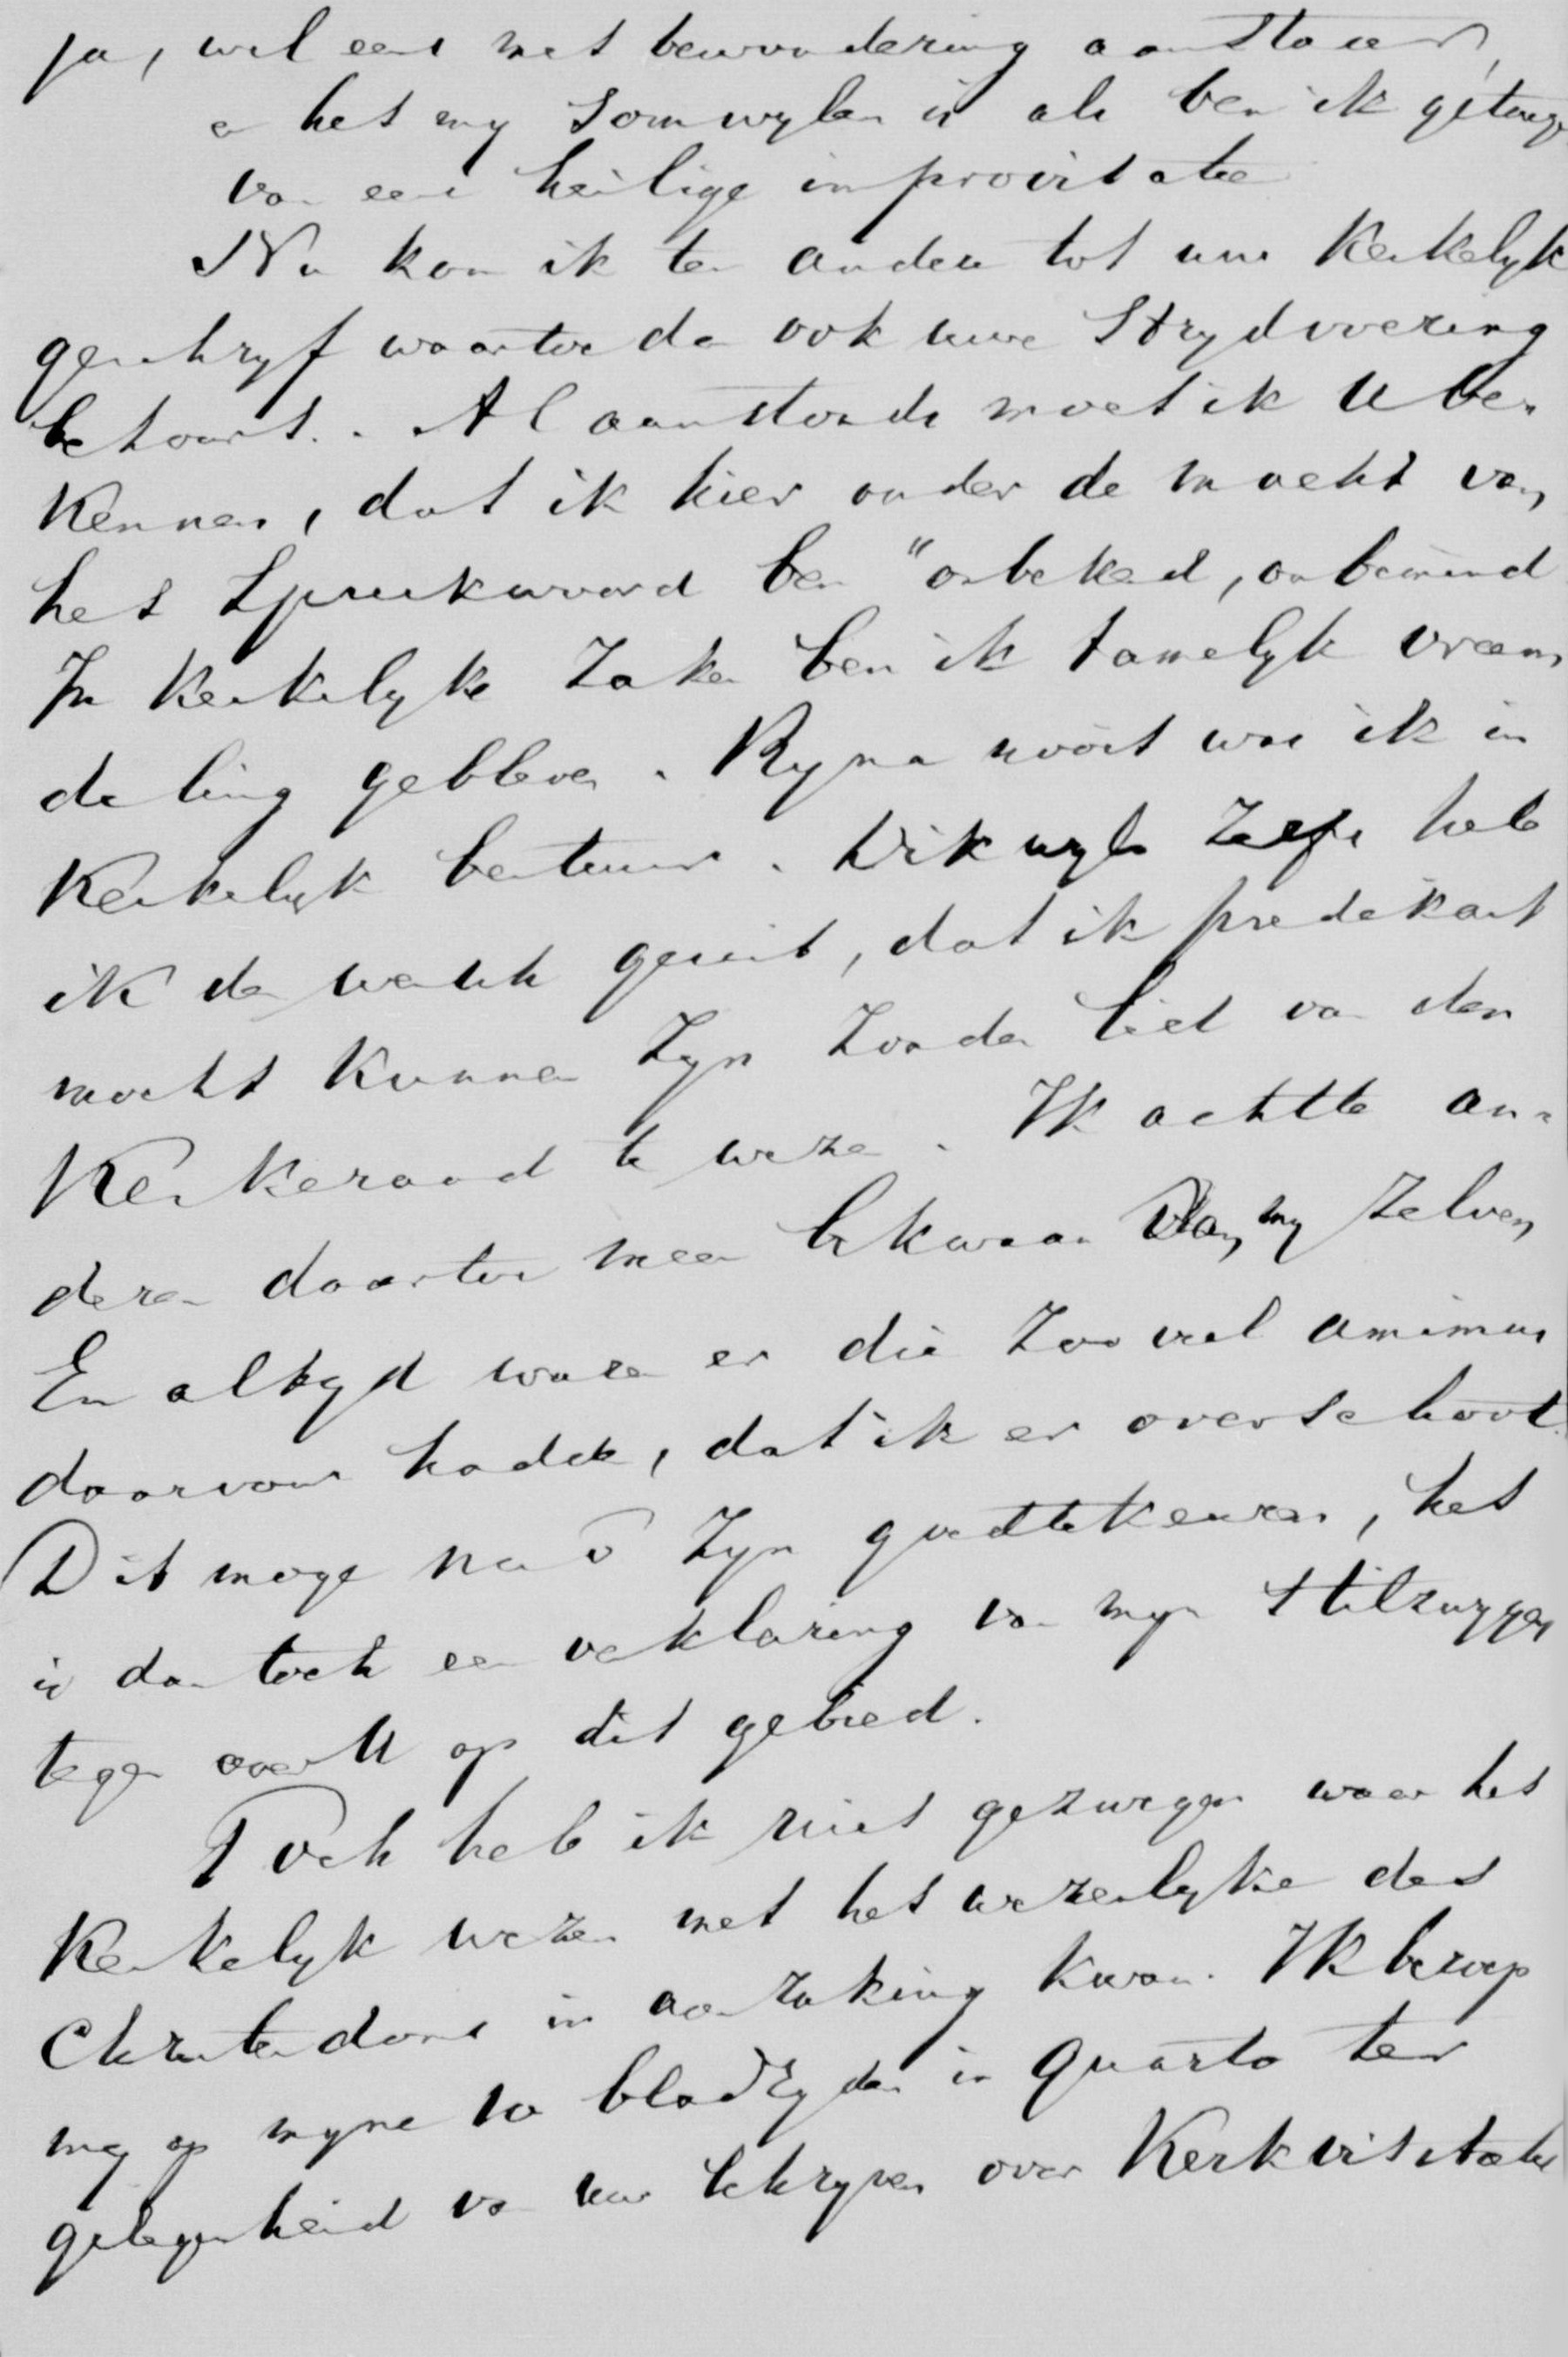 ja, wel eens met bewondering aanstaren,
en het my somwylen is als ben ik getuige
van eene heilige improvisatie
Nu kom ik ten andere tot uw Kerkelyk
geschryf waartoe dan ook uwe Strydvoering
behoort. Al aanstonds moet ik U be-
kennen, dat ik hier onder de macht van
het Spreekwoord ben "onbekend, onbemind
In Kerkelyke Zaken ben ik tamelyk vreem
deling gebleven. Byna nooit was ik in
Kerkelyk bestuur. Dikwyls zelfs heb
ik den wensch geuit, dat ik predikant
mocht kunnen Zyn Zonder lid van den
Kerkeraad te wezen. Ik achtte an-
deren daartoe meer bekwaam dan my Zelven
En altyd waren er die Zooveel animus
daarvoor hadden, dat ik er overschoot.
Dit moge nu Zyn goedtekeuren, het
is dan toch een verklaring van myn Stilzwygen
tegenover U op dit gebied.
Toch heb ik niet gezwegen waar het
Kerkelyk wezen met het wezenlyke des
Christendoms in aanraking kwam. Ik beroep
my op myne 10 bladzyden in quarto ter
gelegenheid van uw Schryven over Kerkvisitatie